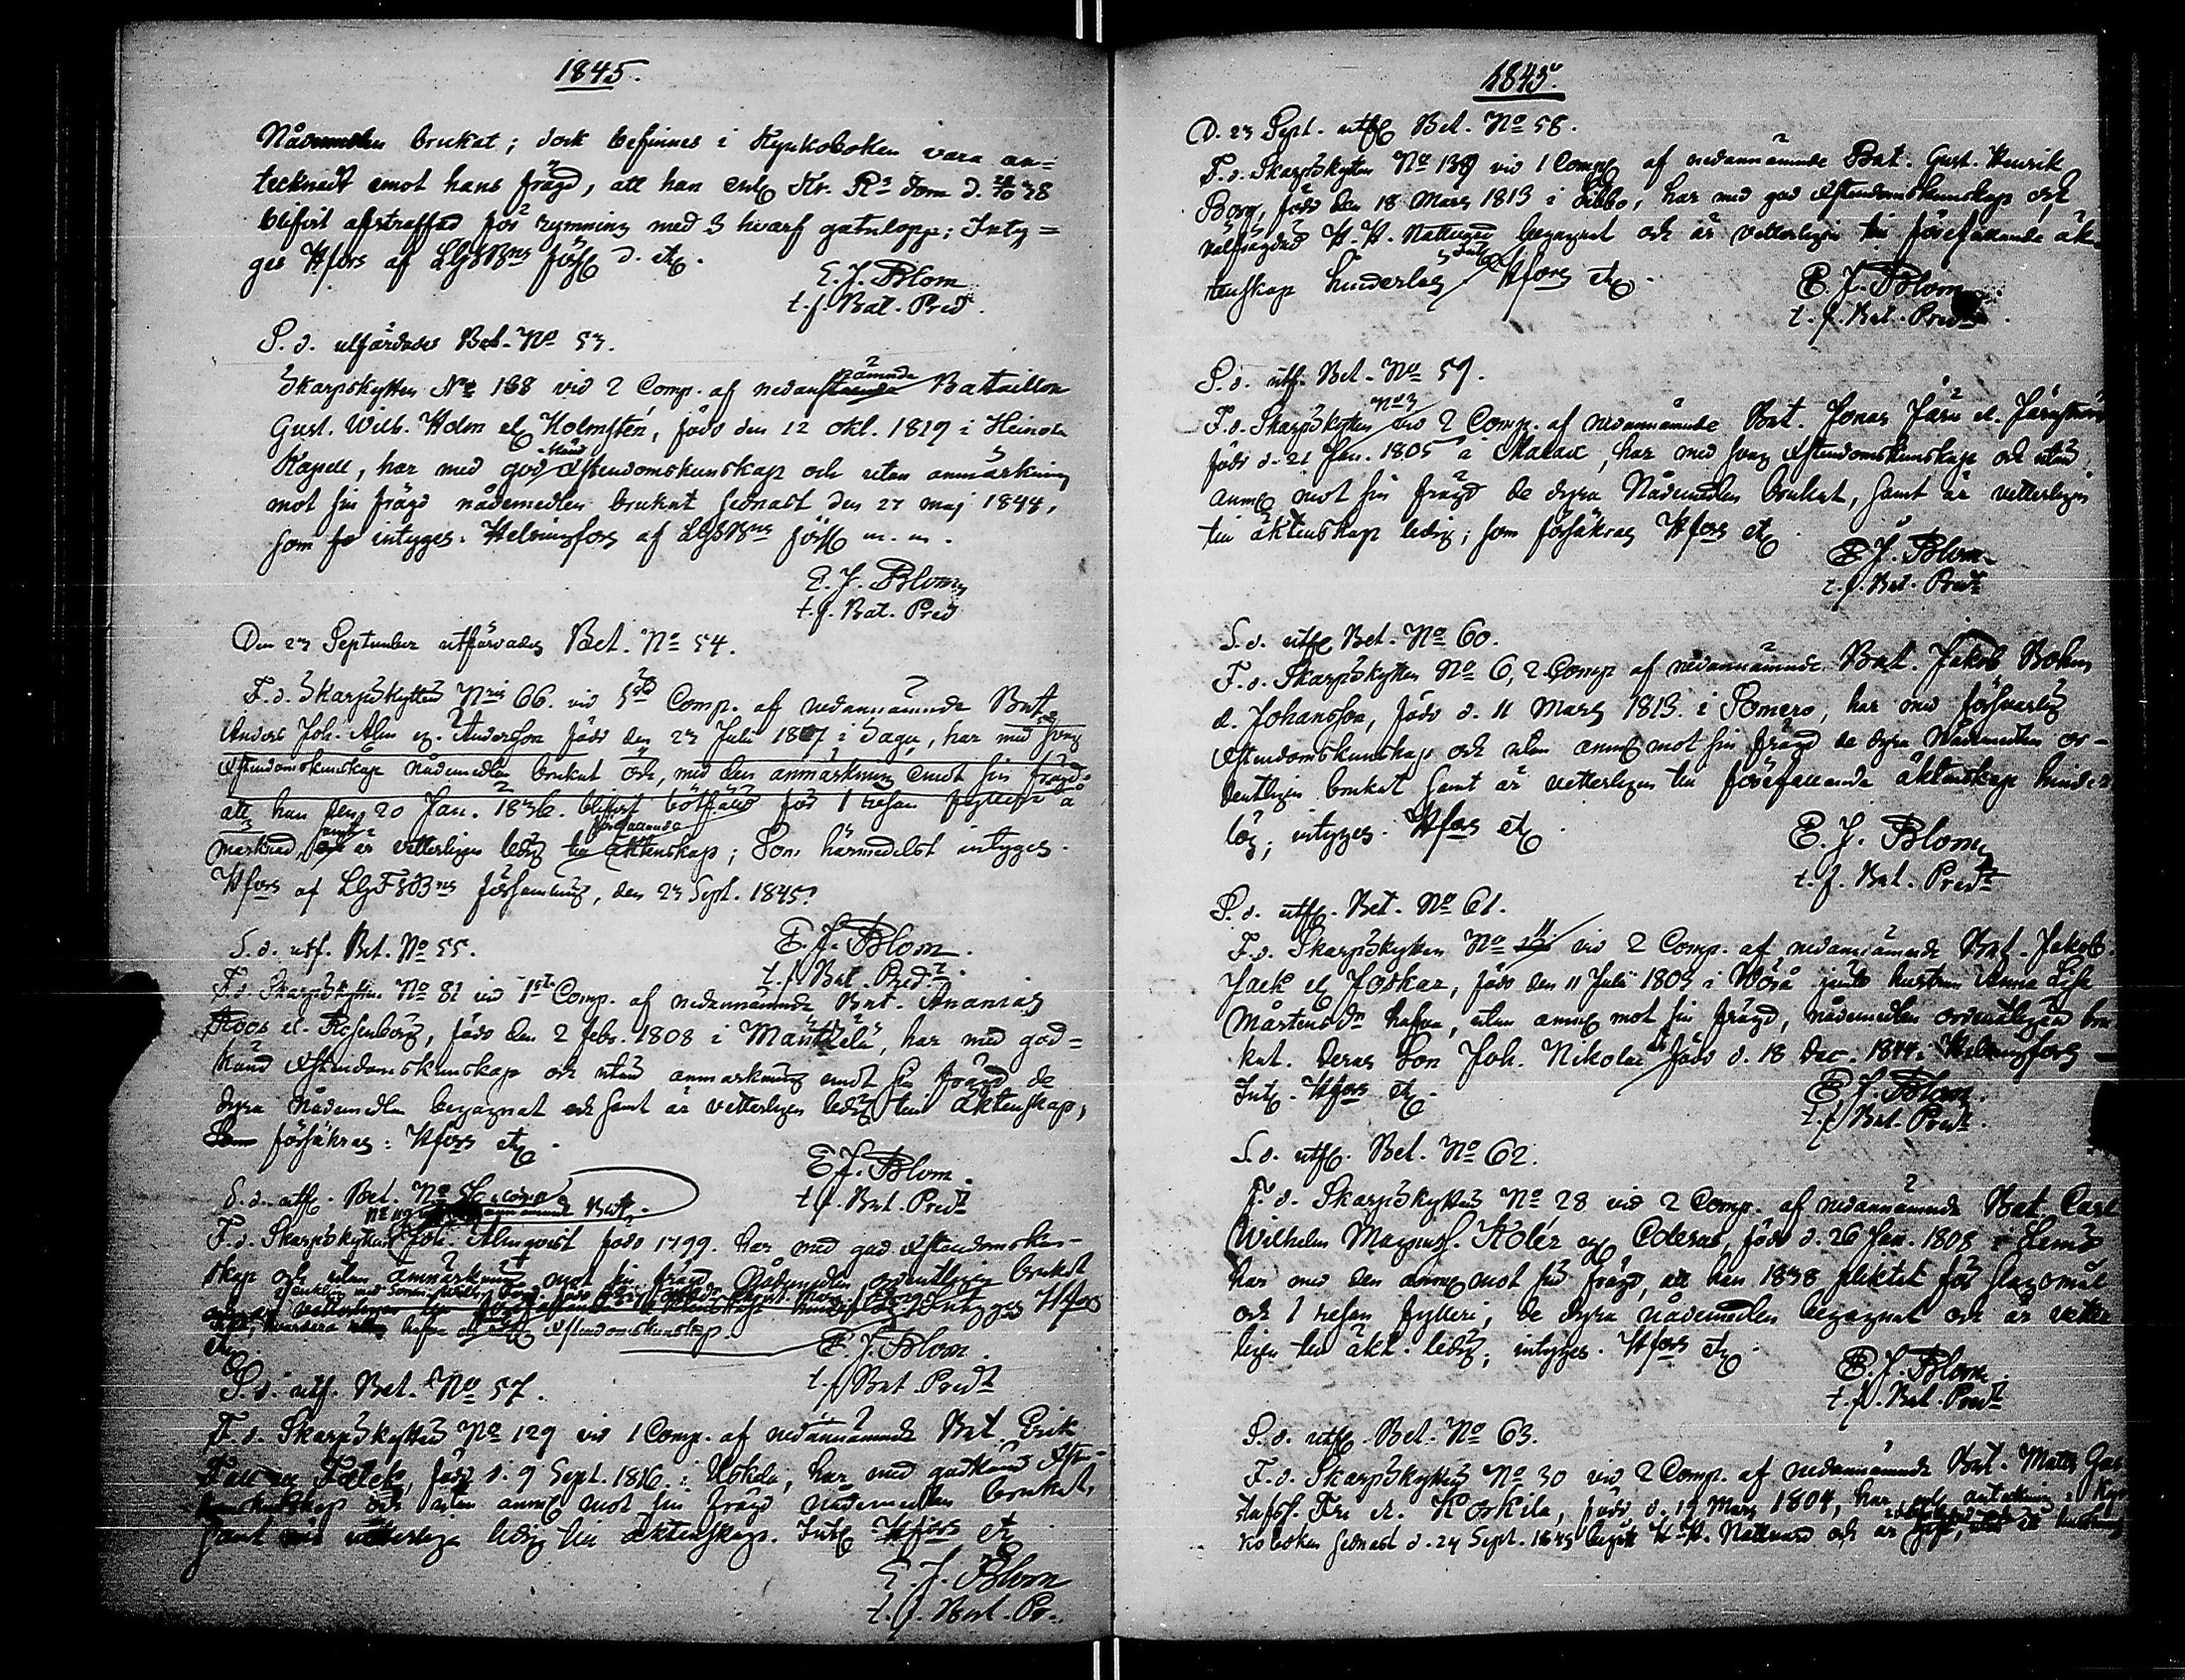 1845.
Nådemedlen brukat; dock befinnes i Kyrkoboken vara an=
tecknadt emot hans frägd, att han enl Kr. Rs dom d. 38
blifvit afstraffad för rymning med 3 hvarf gatulopp; Inty=
gar Hfors af LGFSBns förs d. etc.
E. J. Blom
t. f. Bat. Pred.
S. d. utfärdades Bet. No 53.
Skarpskytten No 138 vid 2 Comp. af nedannämnde Bataillon
Gust. Wilh. Holm el Holmstén, född den 12 Okt. 1819 i Heinola
Kapell, har med god känd Xstendomskunskap och utan anmärkning
mot sin frägd nådemedlen brukat sednast den 27 maj 1844,
som intygas. Helsingfors af LGFSBns förs m. m.
E. J. Blom
t. f. Bat. Pred
Den 23 September utfärdades Bet. No 54.
F. d. Skarpskytten No 66. vid 1sta Comp. af nedannämnde Bat.
Anders Joh. Alm eg. Andersson född den 23 Juli 1807 i Sagu, har med svag
Xstendomskunskap Nådemedlen brukat och, med den anmärkning emot sin frägd
att han den 20 Jan. 1836. blifvit bötfälld för 1 resan fylleri å
marknad, samt är vetterligen ledig till äktenskap; Som härmedelst intygas.
Hfors af LGFSBns församling, den 23 Sept. 1845.
E. J. Blom.
t. f. Bat. Pred.
S. d. utf. Bet. No 55.
F. d. Skarpskytten No 81 vid 1sta Comp. af nedannämnde Bat. Ananias
Roos el. Rosenborg, född den 2 febr. 1808 i Mäntzelä, har med god=
känd Xstendomskunskap och utan anmärkning emot sin frägd de
dyra Nådemedlen begagnat och samt är vetterligen ledig till äktenskap,
Som försäkras: Hfors etc.
E. J. Blom.
t. f. Bat. Pred
S. d. utf. Bet. No 56
F. d. Skarpskytten Joh. Almqvist född 1799. har med god Xstendomskun-
skap och utan anmärkning mot sin frägd Nådemedlen ordentligen brukat
intygas Hfors
hvardera Xstendomskunskap.
etc.
E. J. Blom.
t. f. Bat. Pred
S. d. utf. Bet. No 57.
F. d. Skarpskytten No 129 vid 1 Comp. af nedannämnde Bat. Erik
Fall eg Falck, född d. 9 Sept. 1816 i Uskela, har med godkänd Xsten-
domskunskap och utan anm mot sin frägd nådemedlen brukat,
samt är vetterligen ledig till äktenskap. Int Hfors etc
E. J. Blom
t. f. Bat. Pr.
1845.
D. 23 Sept. utf Bet. No 58.
F. d. Skarpskytten No 139 vid 1 Comp af nedannämnde Bat. Gust. Henrik
Borg, född den 18 Mars 1813 i Sibbo, har med god Xstendomskunskap och
välfrägdad H. H. Nattvard begagnat och är vetterligen till förefallande äk-
tenskap hinderlös Int Hfors etc.
E. J. Blom.
t. f. Bat. Pred
S. d. utf. Bet. No 59.
F. d. Skarpskytten No 3 vid 2 Comp. af nedannämnde Bat. Jonas Järn el. Järnström
född d. 21 Jan. 1805 i Malax, har med svag Xstendomskunskap och utan
anm mot sin frägd de dyra Nådemedlen brukat, samt är vetterligen
till äktenskap ledig; som försäkras Hfors etc.
E. J. Blom
t. f. Bat. Pred
S. d. utf Bet. No 60.
F. d. Skarpskytten No 6, 2 Comp af nedannämnde Bat. Jakob Bohm
el. Johansson, född d. 11 Mars 1813. i Somero, har med försvarlig
Xstendomskunskap och utan anm mot sin frägd de dyra Nådemedlen or-
dentligen brukat samt är vetterligen till förefallande äktenskap hinder-
lös; intygas. Hfors etc.
E. J. Blom
t. f. Bat. Pred
S. d. utf. Bet. No 61.
F. d. Skarpskytten No 11 vid 2 Comp. af nedannämnde Bat. Jakob
Jack el Joskar, född den 11 Juli 1803 i Wörå jemte hustrun Anna Lisa
Mårtensdr hafva, utan anm mot sin frägd, nådemedlen ordentligen bru
kat. Deras Son Joh. Nikolai född d. 18 Dec. 1844 i Helsingfors
Int. Hfors etc.
E. J. Blom.
t. f. Bat. Pred.
S. d. utf. Bet. No 62.
F. d. Skarpskytten No 28 vid 2 Comp. af nedannämnde Bat. Carl
Wilhelm Magnuss. Kolér eg Colerus, född d. 26 Jan. 1808 i Lemo
har med den anm mot sin frägd, att han 1838 pliktat för slagsmål
och 1 resan fylleri, de dyra nådemedlen begagnat och är vetter
ligen till äkt. ledig; intygas. Hfors etc.
E. J. Blom.
t. f. Bat. Pred
S. d. utf. Bet. No 63.
F. d. Skarpskytten No 30 vid 2 Comp. af nedannämnde Bat. Matts Gus
tafss. Fri el. Korkila, född d. 19 Mars 1804, har enl anteckning i Kyr
koboken sednast d. 24 Sept. 1843 begått H. H. Nattvard och är